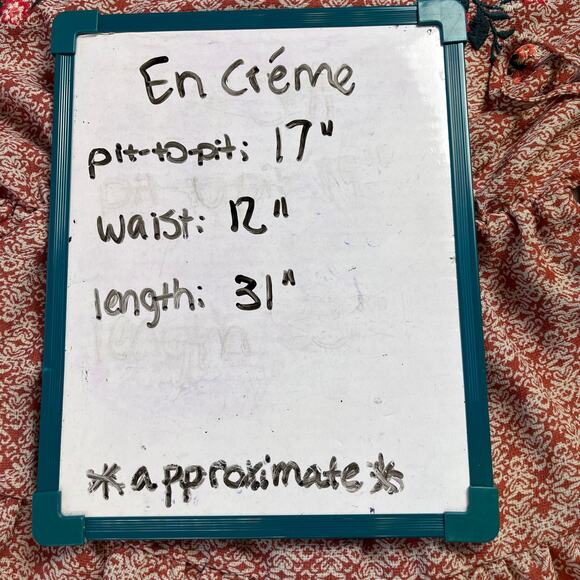 En Créme
pit-to-pit: 17"
waist: 12"
length: 31"
*approximate*